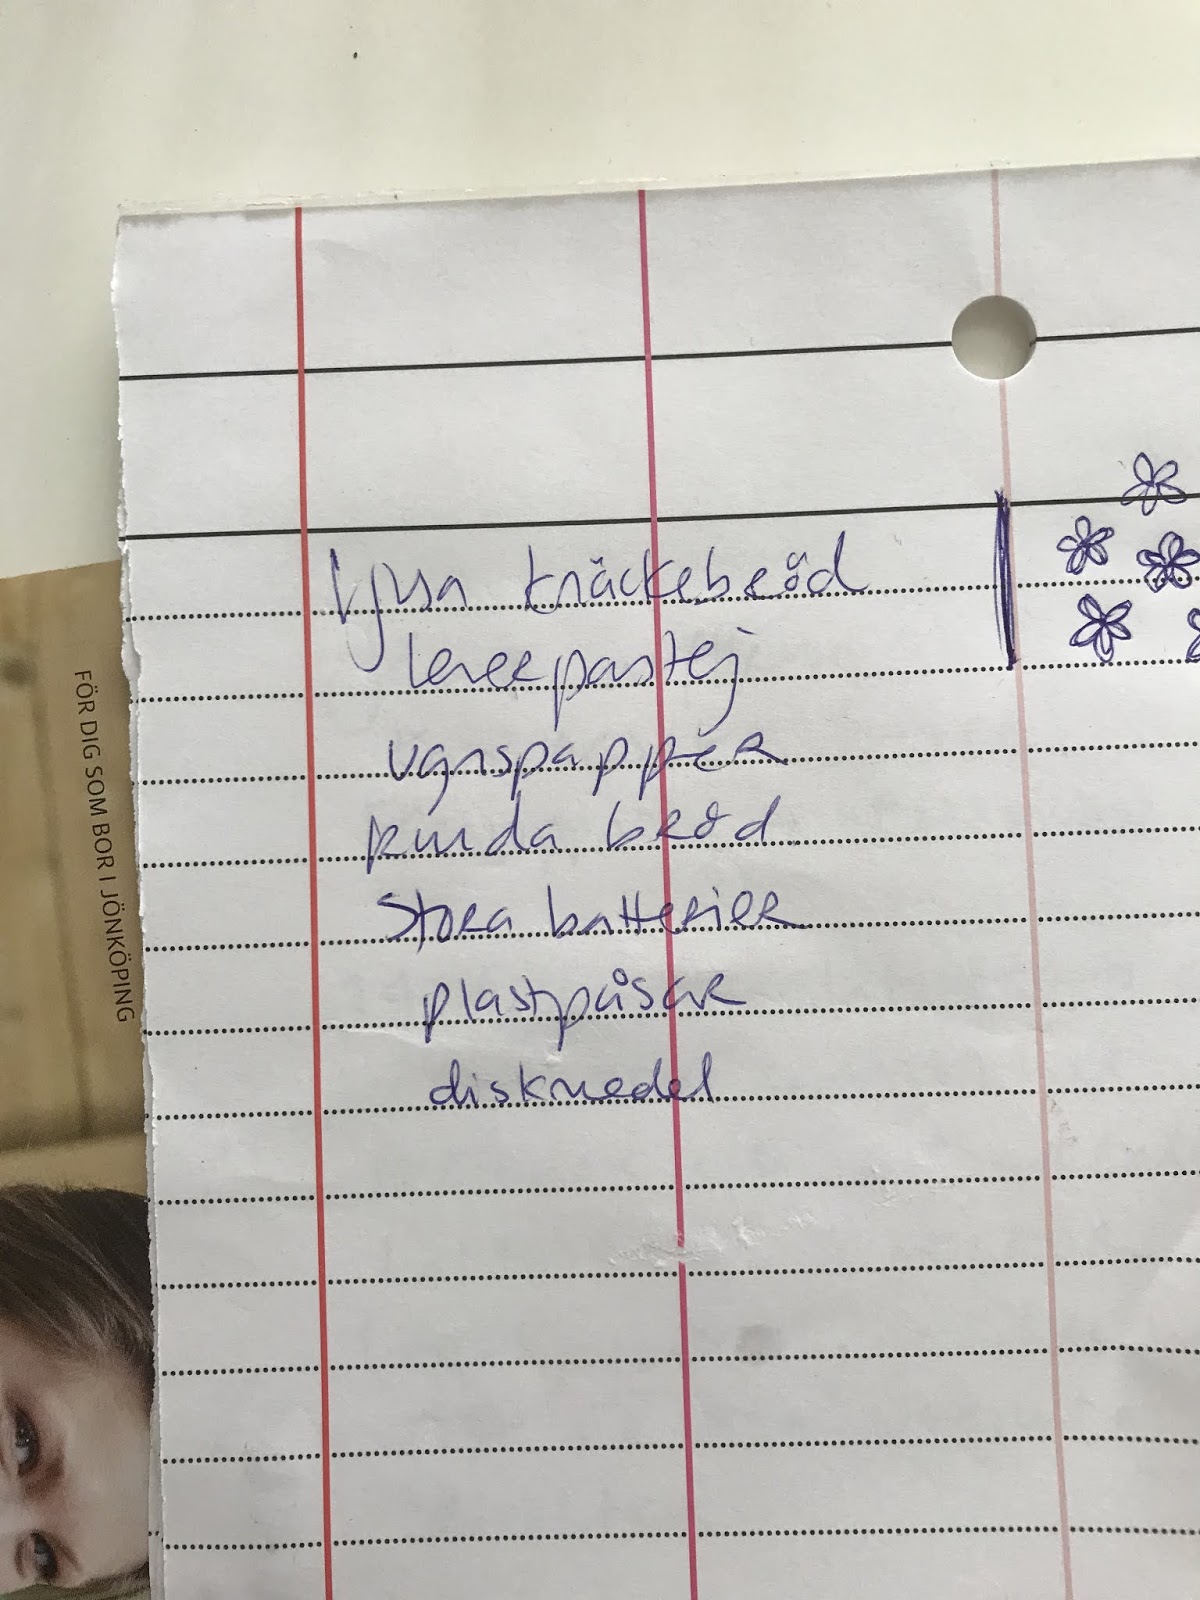 ljusa knäckebröd
leverpastej
ugnspapper
runda bröd
stora batterier
plastpåsar
diskmedel
FÖR DIG SOM BOR I JÖNKÖPING